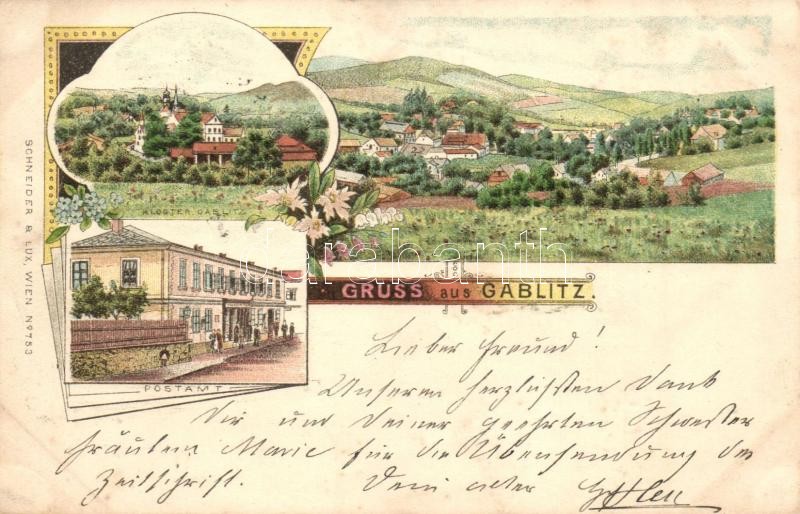 KLOSTER GABLITZ
SCHNEIDER & LUX, WIEN No 753
POSTAMT
GRUSS aus GABLITZ.
darabanth.com
Lieber Freund!
Unseren herzlichsten Dank
Dir und Deiner geehrten Schwester
Fräulein Marie für die Übersendung der
Zeitschrift. Dein alter